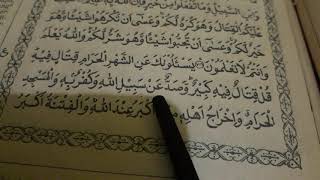 وَابْنِ السَّبِيلِ وَمَا تَفْعَلُوا مِنْ خَيْرٍ فَإِنَّ اللهَ
عَلَيْكُمُ الْقِتَالُ وَهُوَ كُرْهٌ لَّكُمْ وَعَسَى أَنْ تَكْرَهُوا شَيْئًا وَهُوَ
خَيْرٌ لَّكُمْ وَعَسَى أَنْ تُحِبُّوا شَيْئًا وَهُوَ شَرٌّ لَّكُمْ وَاللهُ يَعْلَمُ
وَأَنْتُمْ لَا تَعْلَمُونَ يَسْئَلُونَكَ عَنِ الشَّهْرِ الْحَرَامِ قِتَالٍ فِيهِ
قُلْ قِتَالٌ فِيهِ كَبِيرٌ وَصَدٌّ عَنْ سَبِيلِ اللهِ وَكُفْرٌ بِهِ وَالْمَسْجِدِ
الْحَرَامِ وَإِخْرَاجُ أَهْلِهِ أَكْبَرُ عِنْدَ اللهِ وَالْفِتْنَةُ أَكْبَرُ